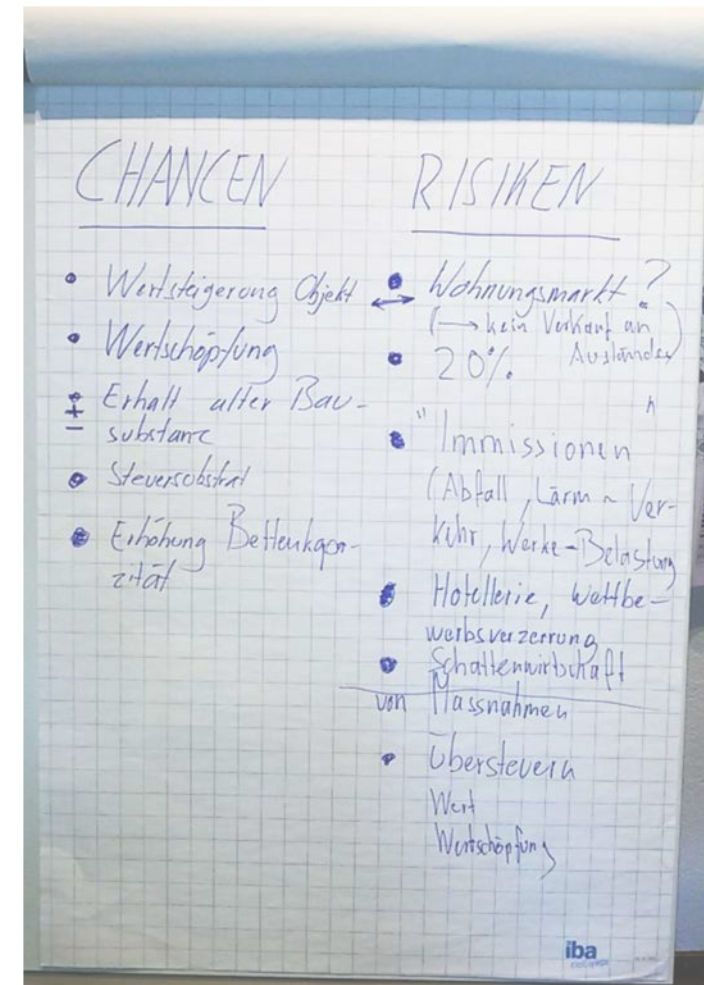 CHANCEN
• Wertsteigerung Objekt
• Wertschöpfung
± Erhalt alter Bau-
substanz
• Steuersubstrat
• Erhöhung Bettenkapa-
zität
RISIKEN
• Wohnungsmarkt?
↔ (→ kein Verkauf an
Ausländer)
• 20%
• "Immissionen"
(Abfall, Lärm ~ Ver-
kehr, Werke-Belastung
• Hotellerie, Wettbe-
werbsverzerrung
• Schattenwirtschaft
von Massnahmen
• Übersteuern
Wert
Wertschöpfung
iba